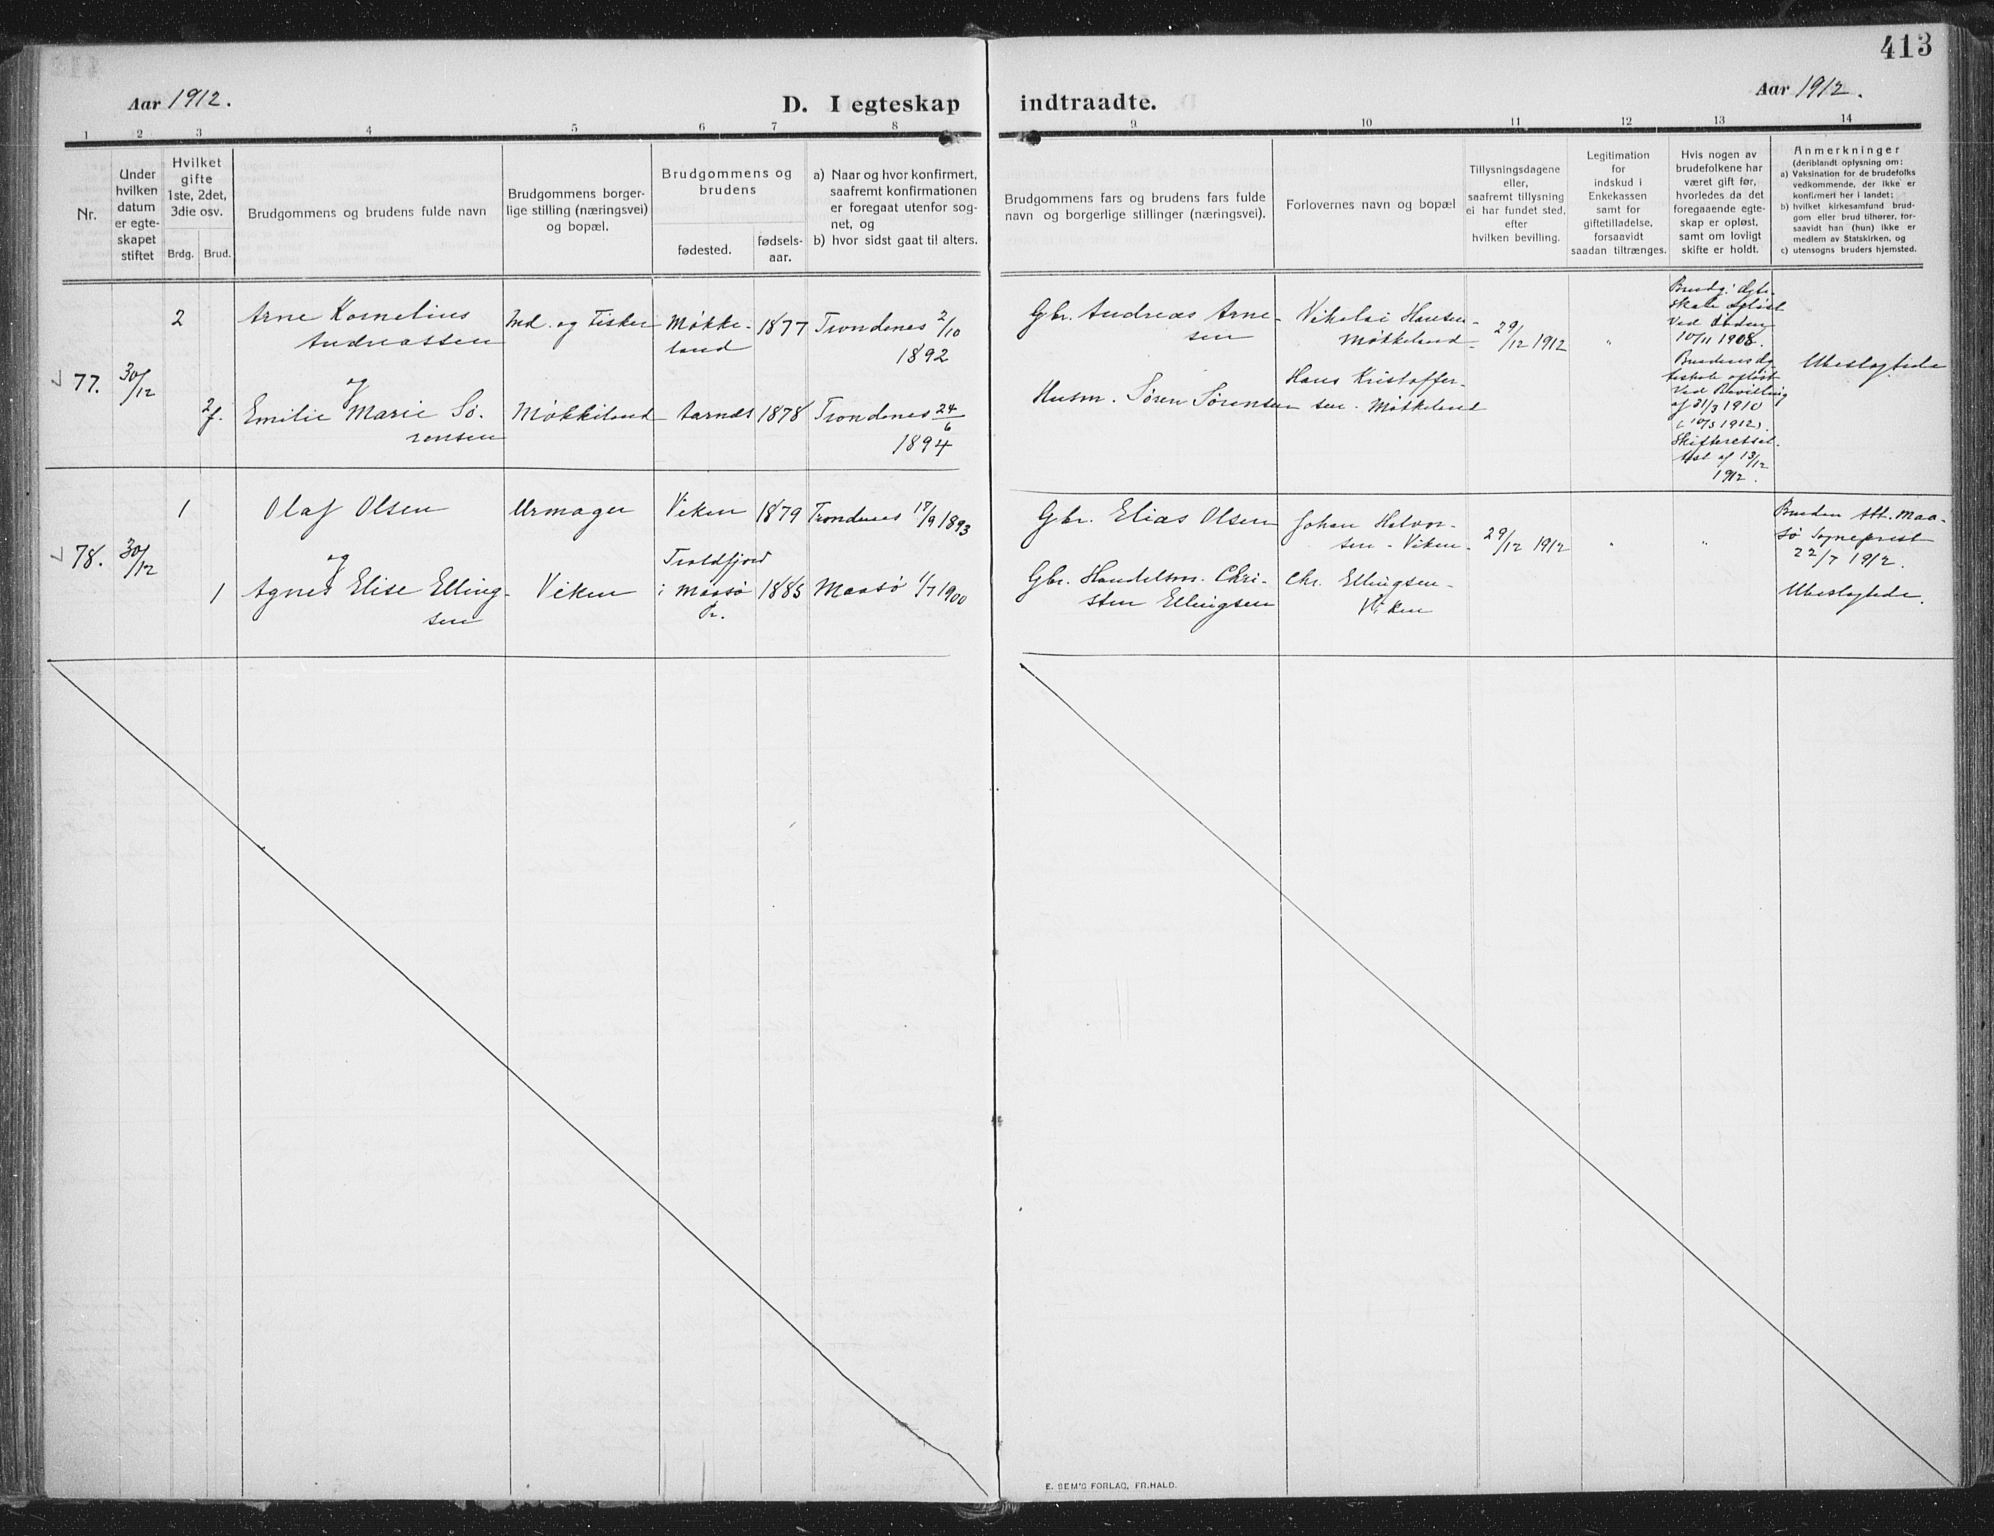 413
Aar 1912.
D. I egteskap indtraadte.
Aar 1912.
1 2 3 4 5 6 7 8 9 10 11 12 13 14
Nr.
Under
hvilken
datum
er egte-
skapet
stiftet
Hvilket
gifte
1ste, 2det,
3die osv.
Brdg. Brud.
Brudgommens og brudens fulde navn
Brudgommens borger-
lige stilling (næringsvei)
og bopæl.
Brudgommens og
brudens
fødested.
fødsels-
aar.
a) Naar og hvor konfirmert,
saafremt konfirmationen
er foregaat utenfor sog-
net, og
b) hvor sidst gaat til alters.
Brudgommens fars og brudens fars fulde
navn og borgerlige stillinger (næringsvei).
Forlovernes navn og bopæl
Tillysningsdagene
eller,
saafremt tillysning
ei har fundet sted,
efter
hvilken bevilling.
Legitimation
for
indskud i
Enkekassen
samt for
giftetilladelse,
forsaavidt
saadan tiltrænges.
Hvis nogen av
brudefolkene har
været gift før,
hvorledes da det
foregaaende egte-
skap er opløst,
samt om lovligt
skifte er holdt.
Anmerkninger
(deriblandt oplysning om:
a) Vaksination for de brudefolks
vedkommende, der ikke er
konfirmert her i landet;
b) hvilket kirkesamfund brud-
gom eller brud tilhører, for-
saavidt han (hun) ikke er
medlem av Statskirken, og
c) utensogns bruders hjemsted.
77.
30/12
2
Arne Kornelius
Andreassen
og
2 f.
Emilie Marie Sø-
rensen
Ind. og Fisker
Møkkeland
Møkke-
land
1877
Trondenes 2/10
1892
Aarnes
1878
Trondenes 24/6
1894
Gbr. Andreas Arne-
sen
Husm. Søren Sørensen
Vikelai Hansen -
Møkkeland -
Hans Kristoffer-
sen - Møkkeland
29/12 1912
"
Brudg: Egte-
skab opløst
ved døden
10/11 1908.
Brudens
opløst
ved Bevilling
af 31/3 1910
(10/3 1912).
af 13/12
1912.
Ubeslægtede
78.
30/12
1
Olaf Olsen
og
1
Agnes Elise Elling-
sen
Urmager
Viken
Viken
1879
Trondenes 17/9 1893
Troldfjord
i Maasø
Pr.
1885
Maasø 1/7 1900
Gbr. Elias Olsen
Gbr. Handelsm. Chri-
sten Ellingsen
Johan Halvor-
sen - Viken -
Chr. Ellingsen -
Viken
29/12 1912
"
"
Bruden Att. Maa-
sø Sogneprest
22/7 1912.
Ubeslægtede.
E. SEM'S FORLAG, FR.HALD.